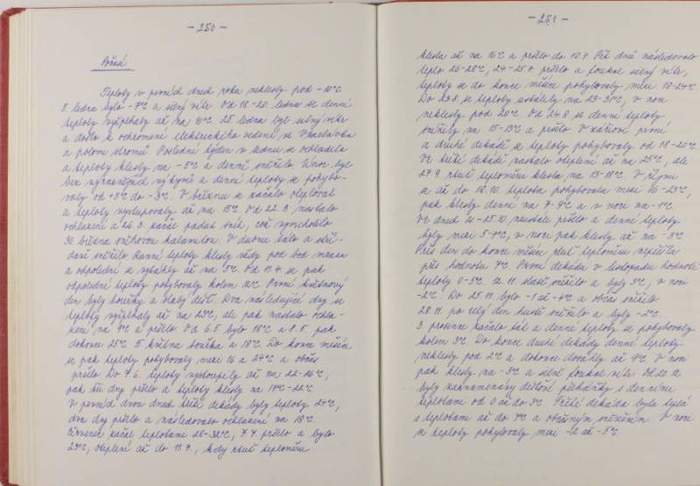 - 250 -
Počasí
Teploty v prvních dnech roku neklesly pod -10°C
8. ledna bylo -7°C a silný vítr. Od 18.-20. ledna se denní
teploty vyšplhaly až na 10°C 25. ledna byl silný vítr
a došlo k ochromení elektrického vedení
a polom stromů Poslední týden v lednu se ochladilo
a teploty klesly na -5°C a denně sněžilo. Únor byl
bez výraznějších výkyvů a denní teploty se pohybo-
valy od +3°C do -3°C. V březnu se začalo oteplovat
a teploty vystupovaly až na 15°C Od 22.3. nastalo
ochlazení a 26.3. začal padat sníh, což vyvrcholilo
30. března sněhovou kalamitou. V dubnu tálo a stří-
davě sněžilo Ranní teploty klesly vždy pod bod mrazu
a odpolední se vyšplhaly až na 5°C Od 11.4. se pak
odpolední teploty pohybovaly kolem 12°C První květnový
den byly bouřky a slabý déšť. Dva následující dny se
teploty vyšplhaly až na 23°C, ale pak nastalo ochla-
zení na 9°C a pršelo Od 6.5. bylo 18°C a 8.5. pak
dokonce 25°C 15. května bouřka a 18°C Do konce měsíce
se pak teploty pohybovaly mezi 16 a 24°C a občas
pršelo Do 7.6. teploty vystoupily až na 22-26°C,
pak tři dny pršelo a teploty klesly na 10°-12°C
V prvních dvou dnech třetí dekády byly teploty 24°C,
dva dny pršelo a následovalo ochlazení na 18°C
Červenec začal teplotami 28-32°C, 7.7. pršelo a bylo
29°C, oteplení až do 11.7., kdy rtuť teploměru
- 251 -
klesla až na 16°C a pršelo do 10.7. Pět dnů následovalo
teplo 26-28°C, 24.-25.7. pršelo a foukal silný vítr,
teploty se do konce měsíce pohybovaly mezi 18-24°C
Do 20.8. se teploty ustálily na 25-30°C, v noci
neklesly pod 20°C Od 24.8. se denní teploty
snížily na 15-18°C a pršelo V září první
a druhé dekádě se teploty pohybovaly od 18-22°C
Ve třetí dekádě nastalo oteplení až na 25°C, ale
27.9. rtuť teploměru klesla na 13-15°C V říjnu
a až do 18.10. teplota pohybovala mezi 10-23°C,
pak klesly denní na 7-9°C a v noci na -1°C
Ve dnech 21.-25.10. nastalo pršelo a denní teploty
byly mezi 5-9°C, v noci pak klesly až na -3°C
Přes den do konce měsíce rtuť teploměru nepřešla
přes hodnotu 7°C. První dekáda v listopadu hodnotí
teploty 0-5°C 12.11. slabě sněžilo a byly 3°C, v noci
-2°C Do 25.11. bylo -1 až -4°C a občas sněžilo
28.11. po celý den hustě sněžilo a byly -2°C
3. prosince začalo tát a denní teploty se pohybovaly
kolem 3°C Do konce druhé dekády denní teploty
neklesly pod 2°C a dokonce dosáhly až 9°C V noci
pak klesly na -3°C a silně foukal vítr
byly zaznamenány dešťové přeháňky s denními
teplotami od 0 až do 3°C. Třetí dekáda byla teplá
s teplotami až do 7°C a občasným sněžením V noci
se teploty pohybovaly mezi -2 až -5°C